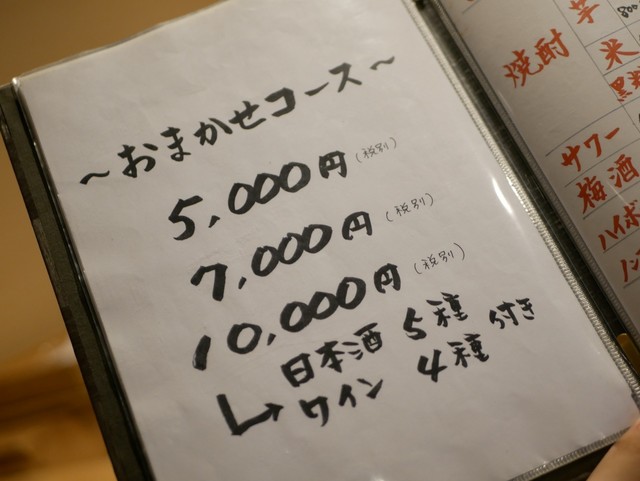 ～おまかせコース～
5,000円(税別)
7,000円(税別)
10,000円(税別)
日本酒 5種 付き
↳ワイン 4種
焼酎
芋
800
米
サワー
梅酒
ハイボ
ノン